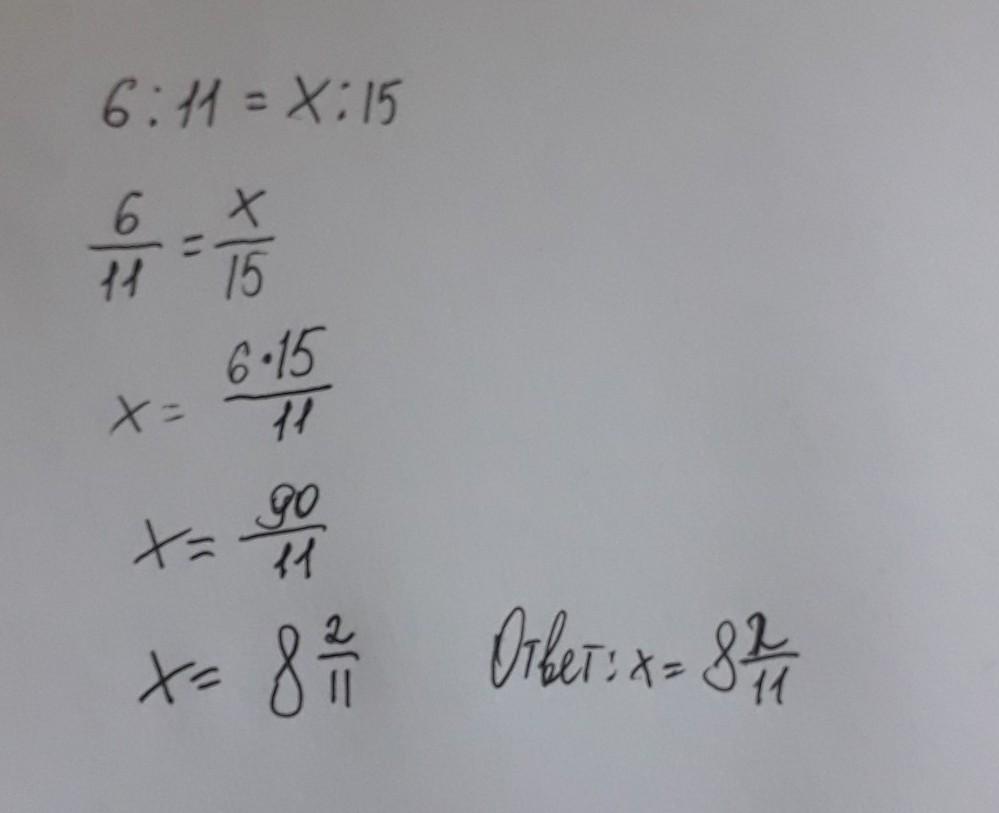 6 : 11 = x : 15
6/11 = x/15
x = 6·15/11
x = 90/11
x = 8 2/11
Ответ: x = 8 2/11